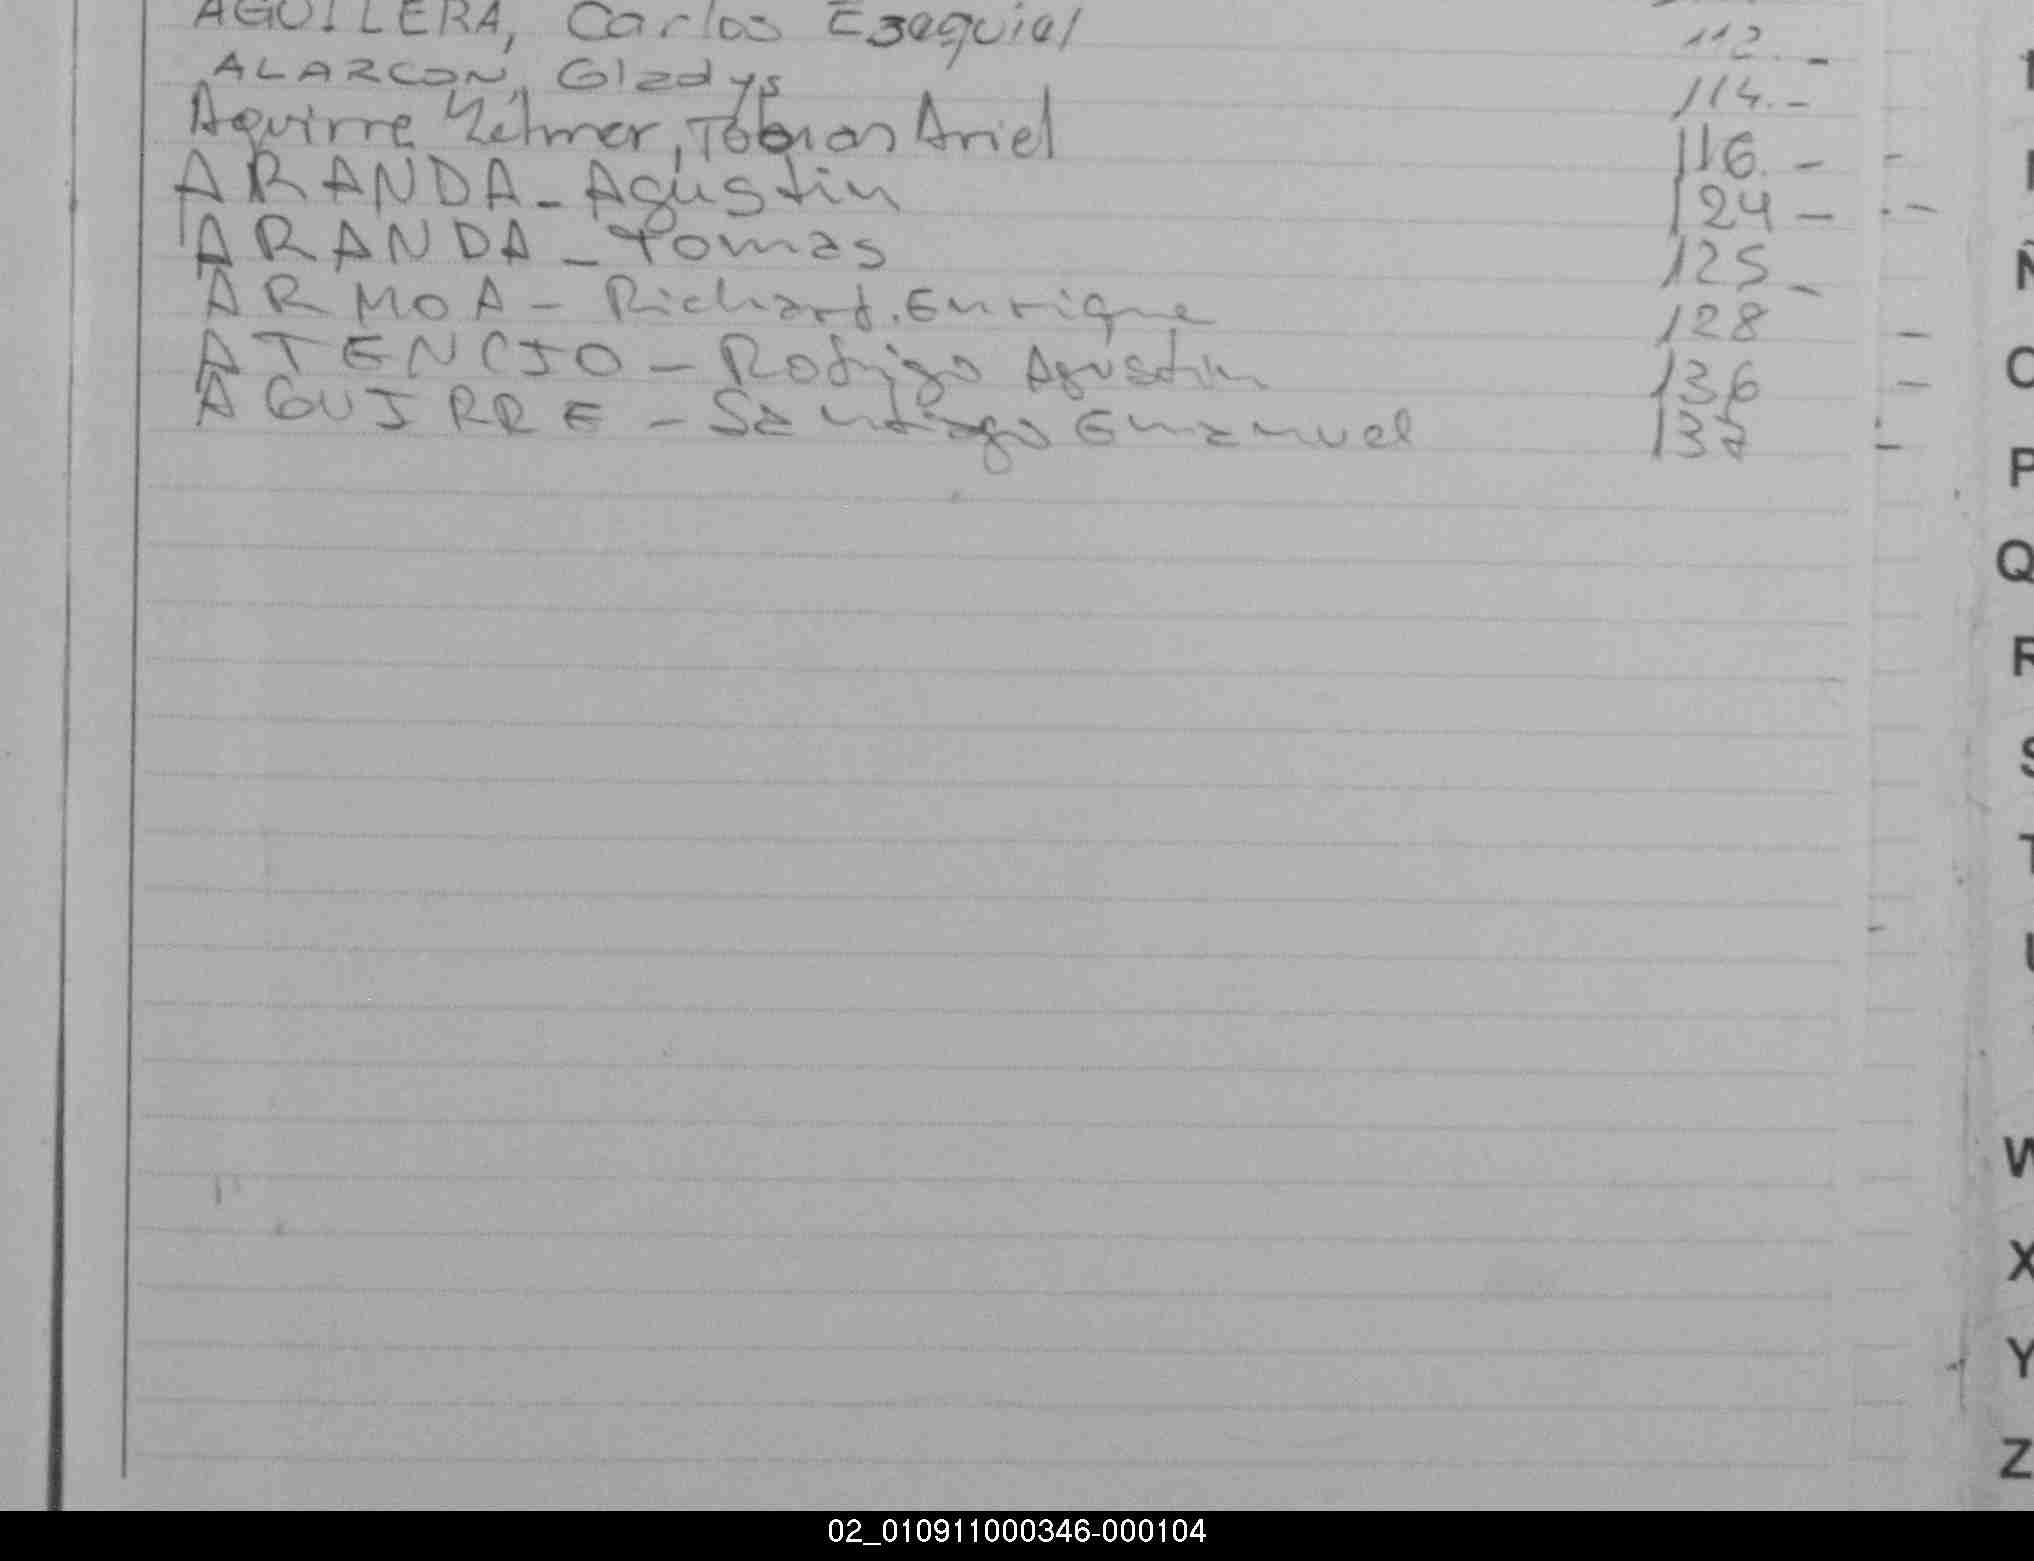 AGUILERA, Carlos Ezequiel 112.-
ALARCON, Gladys 114.-
Aguirre, Tobias Ariel 116.-
ARANDA - Agustin 124 -
ARANDA - Tomas 125 -
ARMOA - Richard. Enrique 128 -
ATENCIO - Rodrigo Agustin 136 -
AGUIRRE - Santiago Emanuel 137 -
Ñ
O
P
Q
R
S
T
U
W
X
Y
Z
02_010911000346-000104